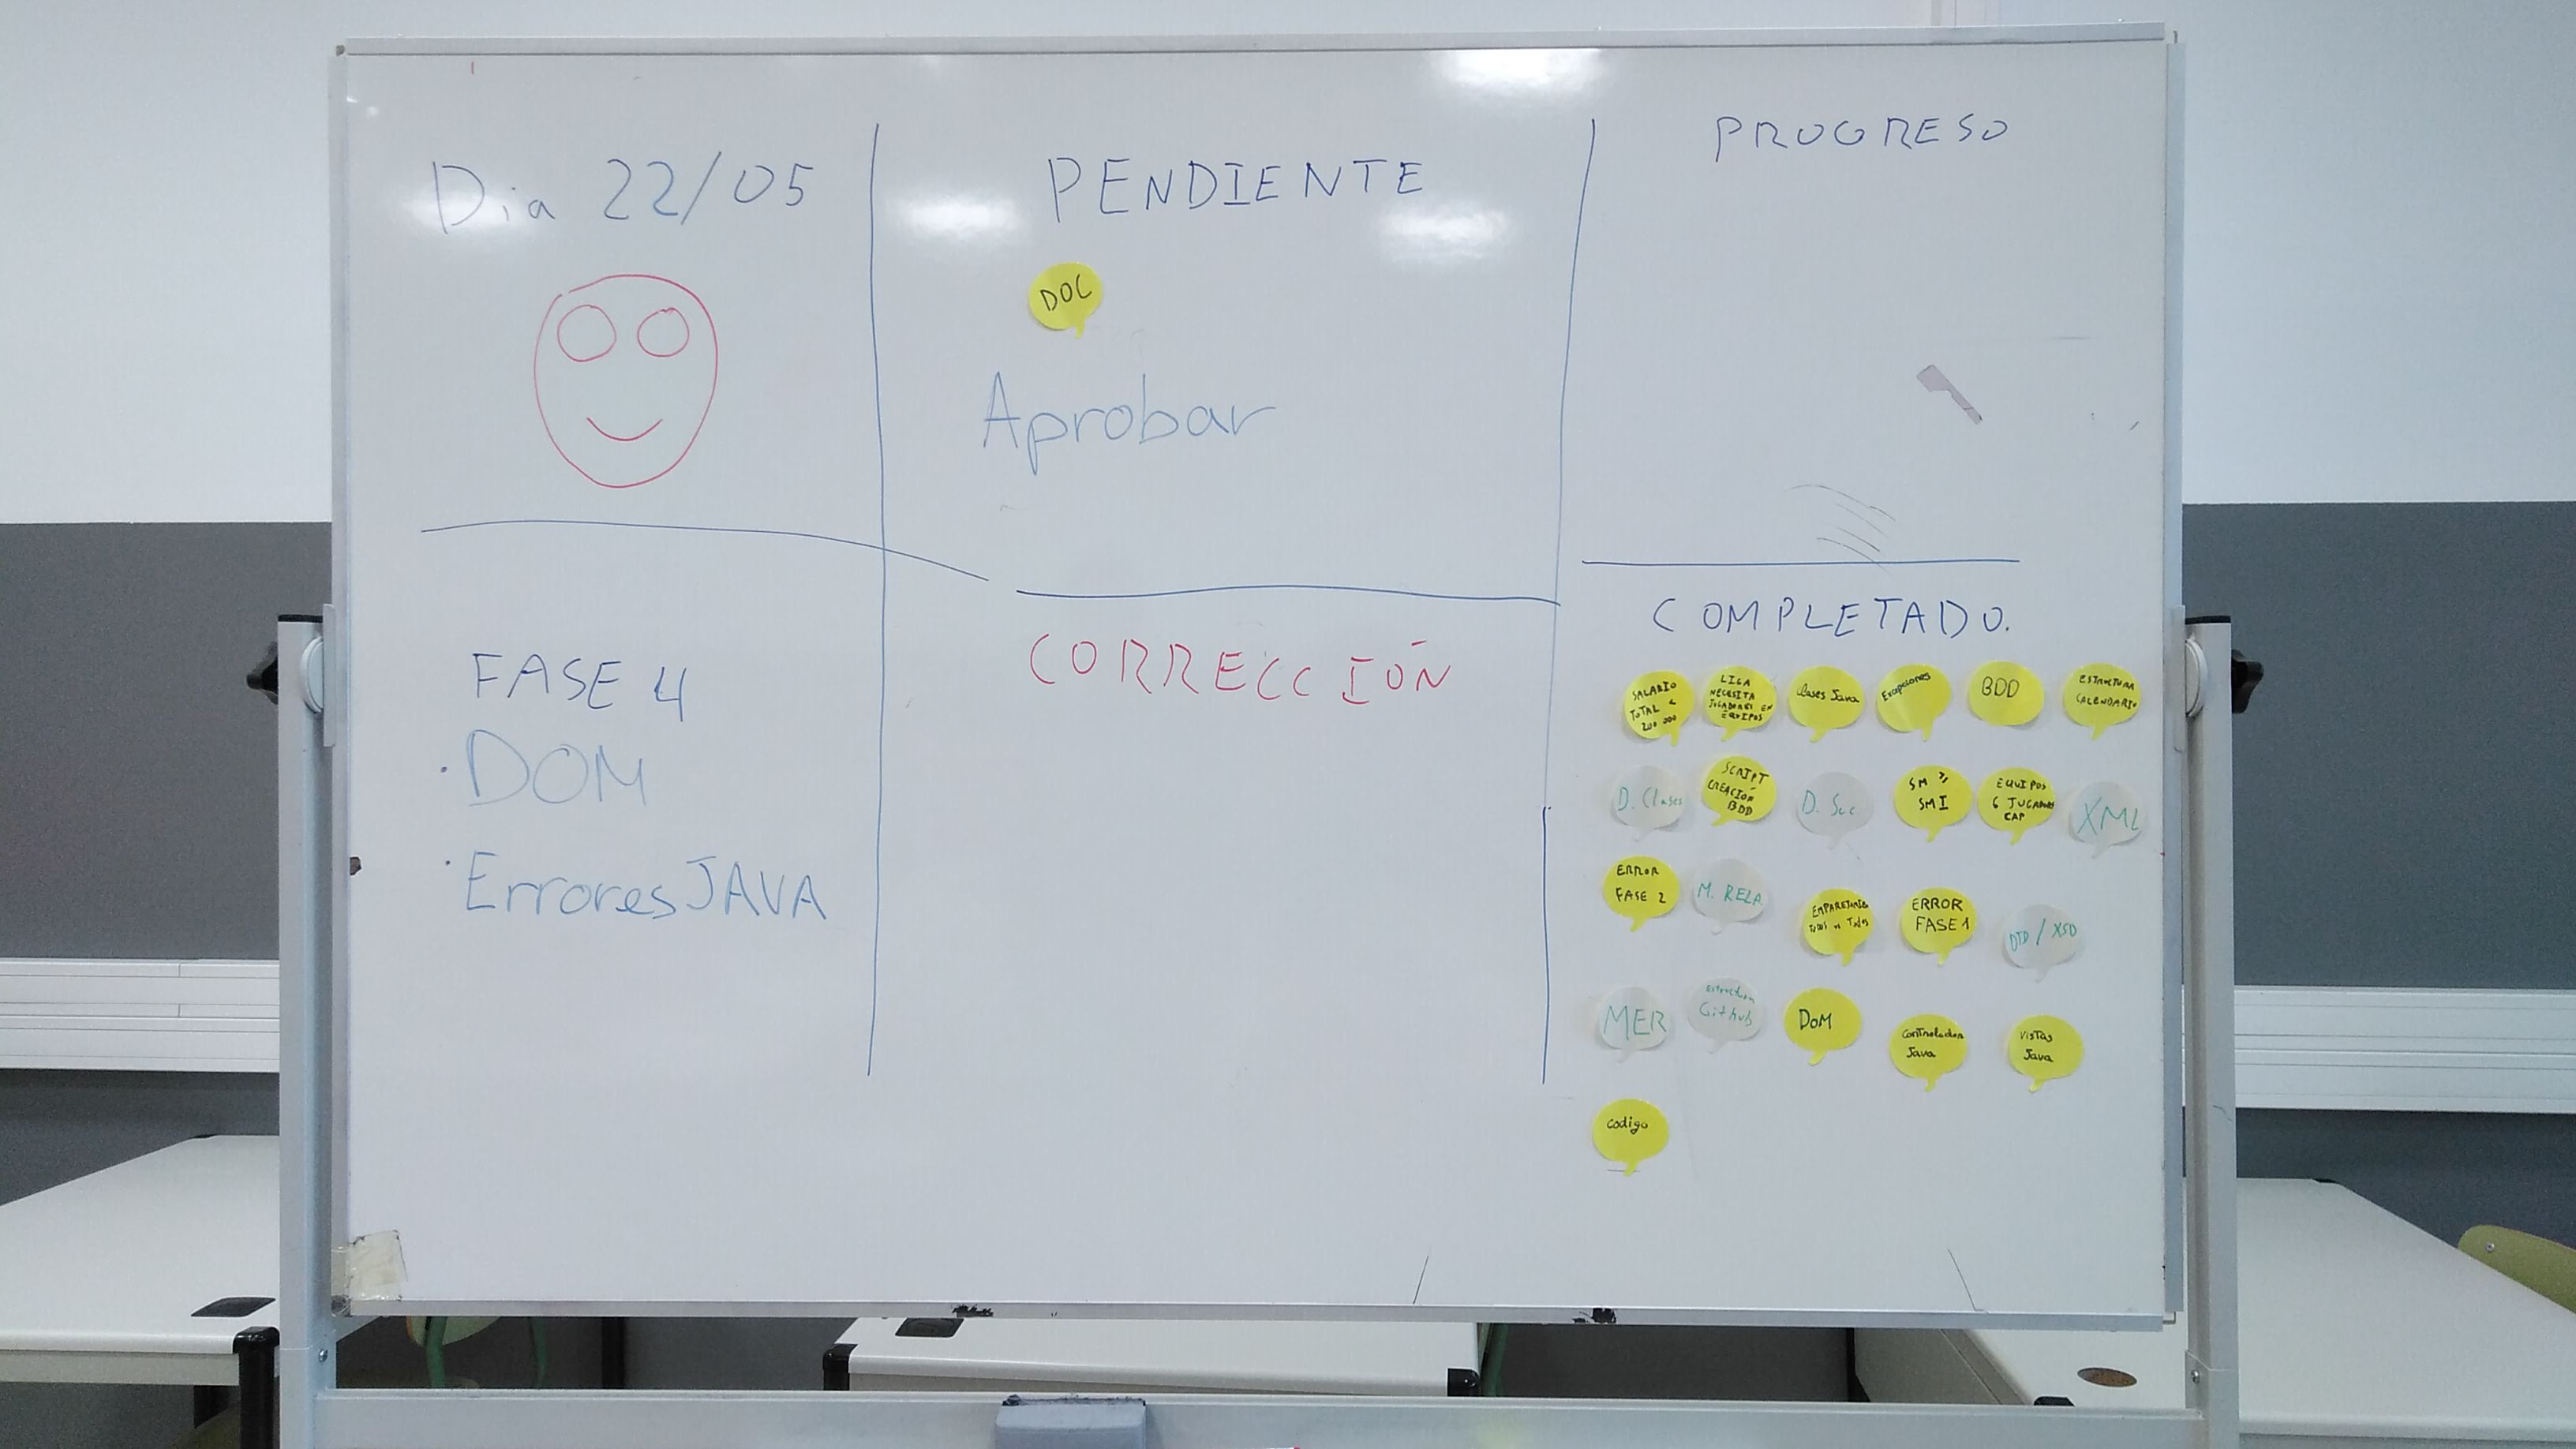 Dia 22/05
PENDIENTE
DOC
Aprobar
PROGRESO
FASE 4
· DOM
· Errores JAVA
CORRECCIÓN
COMPLETADO.
SALARIO
TOTAL <
200 000
LIGA
NECESITA
JUGADORES EN
EQUIPOS
Clases Java
Excepciones
BDD
ESTRUCTURA
CALENDARIO
D. Clases
SCRIPT
CREACIÓN
BDD
D. Sec
SM >
SMI
EQUIPOS
6 JUGADORES
CAP
XML
ERROR
FASE 2
M. RELA
TODOS vs Todos
ERROR
FASE 1
DTD / XSD
MER
Estructura
Github
DOM
Controlador
Java
Vistas
Java
Codigo